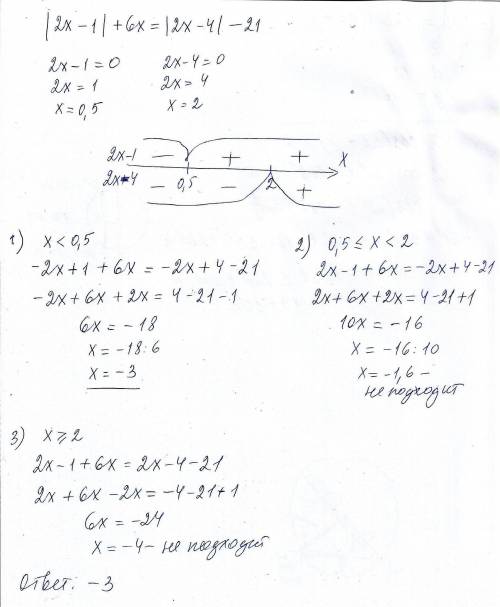 |2x-1|+6x=|2x-4|-21
2x-1=0 2x-4=0
2x=1 2x=4
x=0,5 x=2
2x-1 - + + x
2x-4 - 0,5 - 2 +
1) x<0,5
-2x+1+6x=-2x+4-21
-2x+6x+2x=4-21-1
6x=-18
x=-18:6
x=-3
2) 0,5≤x<2
2x-1+6x=-2x+4-21
2x+6x+2x=4-21+1
10x=-16
x=-16:10
x=-1,6-
не подходит
3) x⩾2
2x-1+6x=2x-4-21
2x+6x-2x=-4-21+1
6x=-24
x=-4- не подходит
Ответ: -3